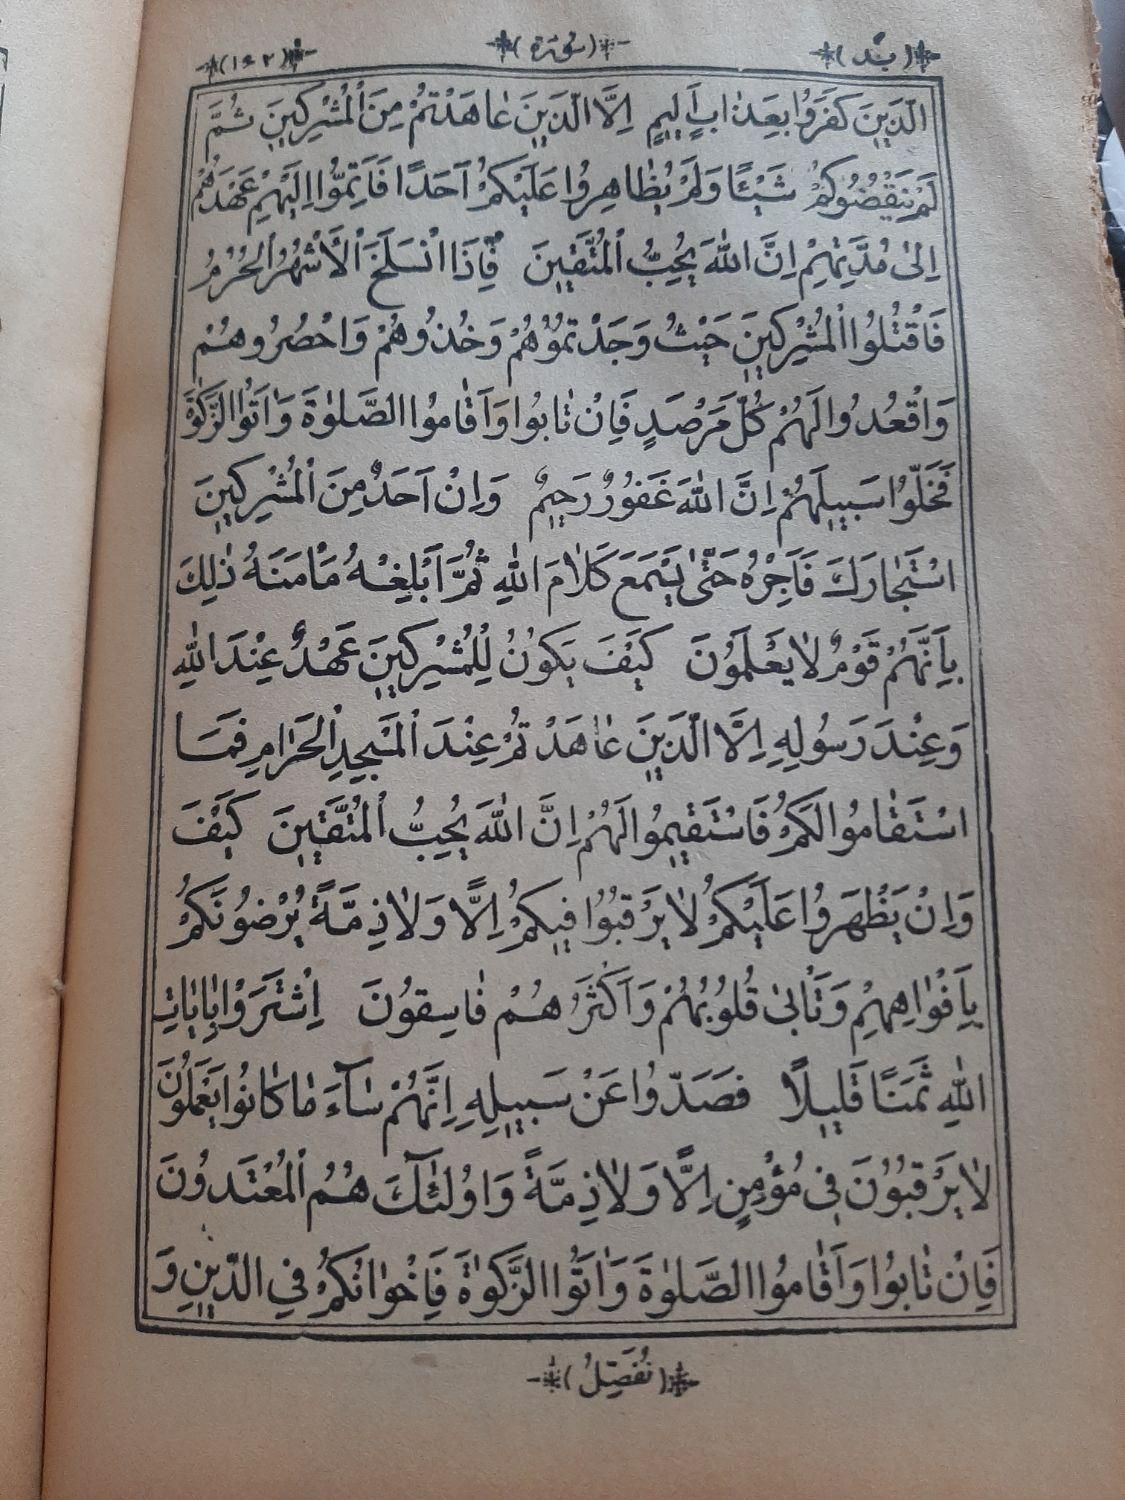 (سورة)
(١٩٢)
الَّذِينَ كَفَرُوا بِعَذَابٍ اَلِيمٍ اِلَّا الَّذِينَ عَاهَدْتُمْ مِنَ الْمُشْرِكِينَ ثُمَّ
لَمْ يَنْقُصُوكُمْ شَيْئًا وَلَمْ يُظَاهِرُوا عَلَيْكُمْ اَحَدًا فَاَتِمُّوا اِلَيْهِمْ عَهْدَهُمْ
اِلٰى مُدَّتِهِمْ اِنَّ اللّٰهَ يُحِبُّ الْمُتَّقِينَ فَاِذَا انْسَلَخَ الْاَشْهُرُ الْحُرُمُ
فَاقْتُلُوا الْمُشْرِكِينَ حَيْثُ وَجَدْتُمُوهُمْ وَخُذُوهُمْ وَاحْصُرُوهُمْ
وَاقْعُدُوا لَهُمْ كُلَّ مَرْصَدٍ فَاِنْ تَابُوا وَاَقَامُوا الصَّلٰوةَ وَاٰتَوُا الزَّكٰوةَ
فَخَلُّوا سَبِيلَهُمْ اِنَّ اللّٰهَ غَفُورٌ رَحِيمٌ وَاِنْ اَحَدٌ مِنَ الْمُشْرِكِينَ
اسْتَجَارَكَ فَاَجِرْهُ حَتّٰى يَسْمَعَ كَلَامَ اللّٰهِ ثُمَّ اَبْلِغْهُ مَاْمَنَهُ ذٰلِكَ
بِاَنَّهُمْ قَوْمٌ لَا يَعْلَمُونَ كَيْفَ يَكُونُ لِلْمُشْرِكِينَ عَهْدٌ عِنْدَ اللّٰهِ
وَعِنْدَ رَسُولِهِ اِلَّا الَّذِينَ عَاهَدْتُمْ عِنْدَ الْمَسْجِدِ الْحَرَامِ فَمَا
اسْتَقَامُوا لَكُمْ فَاسْتَقِيمُوا لَهُمْ اِنَّ اللّٰهَ يُحِبُّ الْمُتَّقِينَ كَيْفَ
وَاِنْ يَظْهَرُوا عَلَيْكُمْ لَا يَرْقُبُوا فِيكُمْ اِلًّا وَلَا ذِمَّةً يُرْضُونَكُمْ
بِاَفْوَاهِهِمْ وَتَاْبٰى قُلُوبُهُمْ وَاَكْثَرُهُمْ فَاسِقُونَ اِشْتَرَوْا بِاٰيَاتِ
اللّٰهِ ثَمَنًا قَلِيلًا فَصَدُّوا عَنْ سَبِيلِهِ اِنَّهُمْ سَاءَ مَا كَانُوا يَعْمَلُونَ
لَا يَرْقُبُونَ فِي مُؤْمِنٍ اِلًّا وَلَا ذِمَّةً وَاُولٰئِكَ هُمُ الْمُعْتَدُونَ
فَاِنْ تَابُوا وَاَقَامُوا الصَّلٰوةَ وَاٰتَوُا الزَّكٰوةَ فَاِخْوَانُكُمْ فِي الدِّينِ وَ
(نُفَصِّلُ)